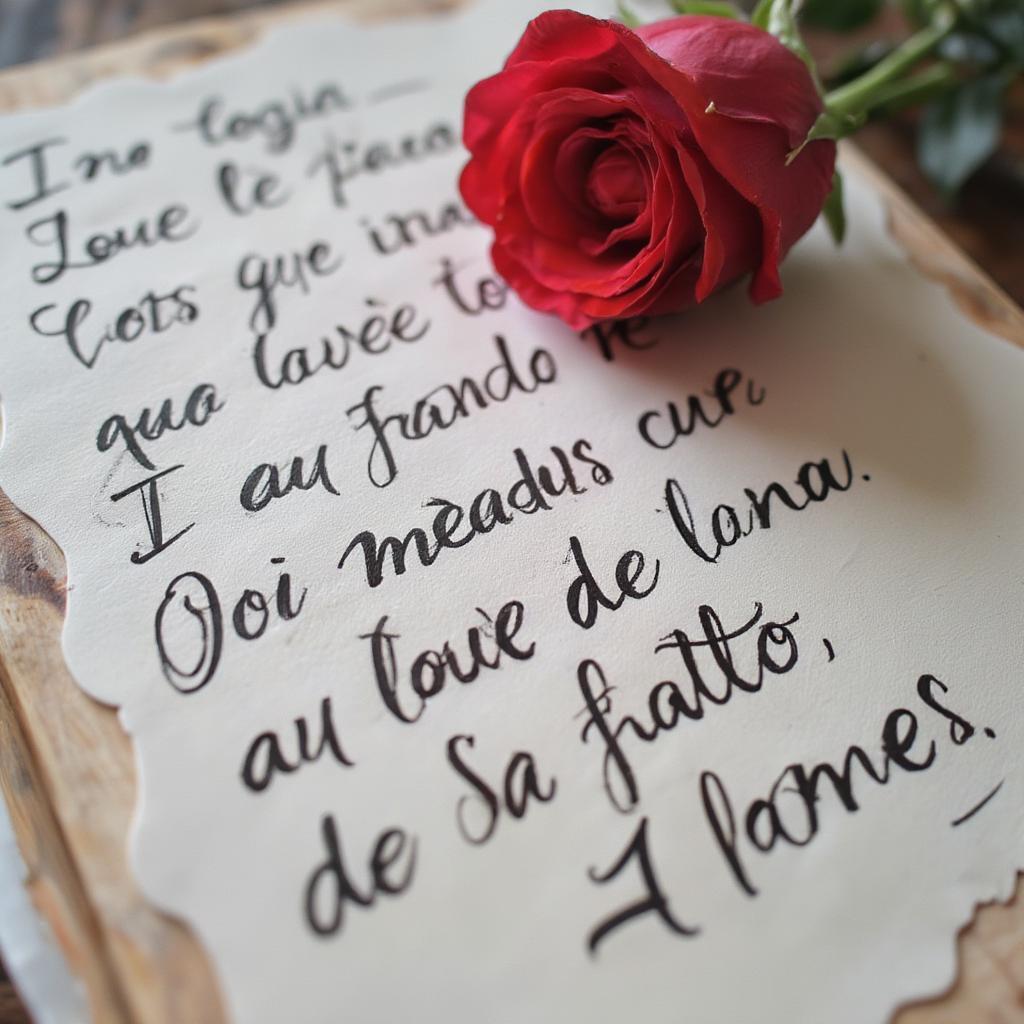 I no login —
Loue lè piaea
Cots que ina
qua lavèe to
I au frando re
Ooi mèadus cur
au louie de lana.
de Sa fratto,
I lomes.